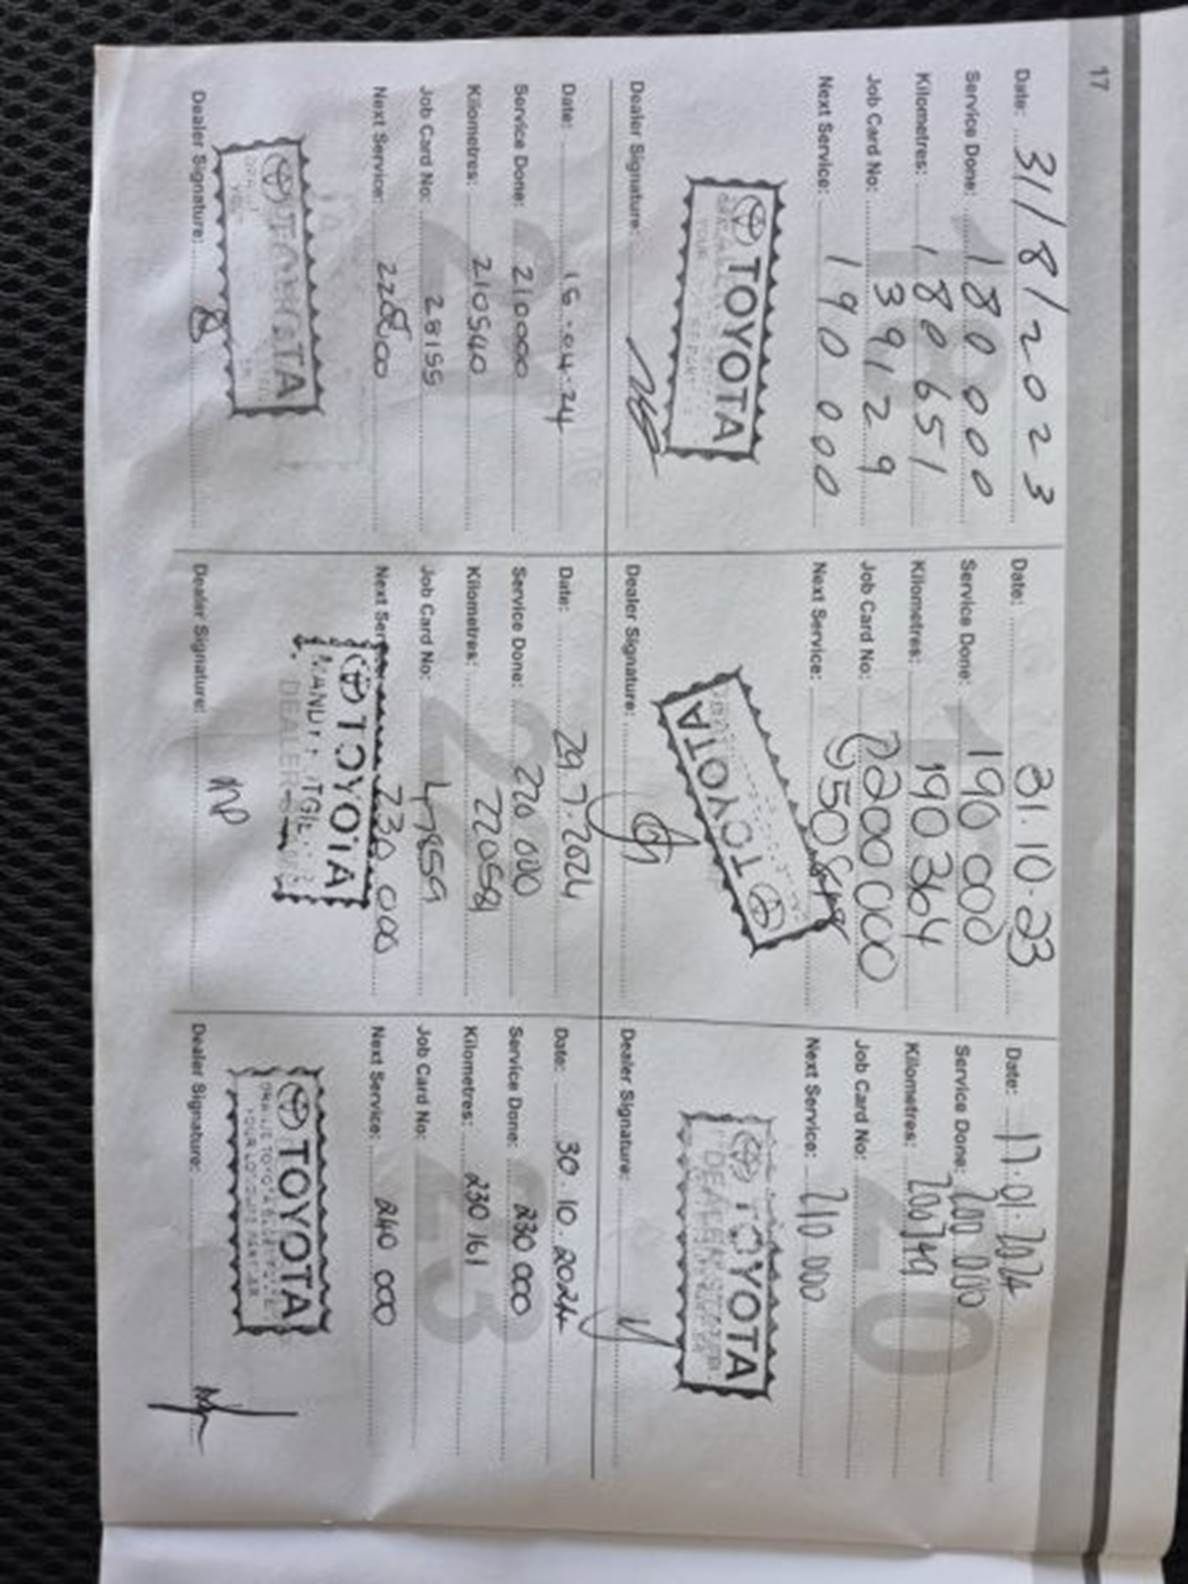 17
Date: 31/8/2023
Service Done: 180 000
Kilometres: 180651
Job Card No: 39129
Next Service: 190 000
TOYOTA
Dealer Signature:
Date: 31.10.23
Service Done: 190 000
Kilometres: 190 364
Job Card No: 2200 000
Next Service:
TOYOTA
Dealer Signature:
20
Date: 17.01.2024
Service Done: 200 000
Kilometres: 200749
Job Card No:
Next Service: 210 000
TOYOTA
Dealer Signature:
Date: 15.04.24
Service Done: 210000
Kilometres: 210540
Job Card No: 28155
Next Service:
TOYOTA
Dealer Signature:
22
Date: 29.7.2024
Service Done: 220 000
Kilometres: 220581
Job Card No: 47859
Next Ser 230 000
TOYOTA
Dealer Signature: MP
23
Date: 30.10.2024
Service Done: 230 000
Kilometres: 230 161
Job Card No:
Next Service: 240 000
TOYOTA
Dealer Signature: